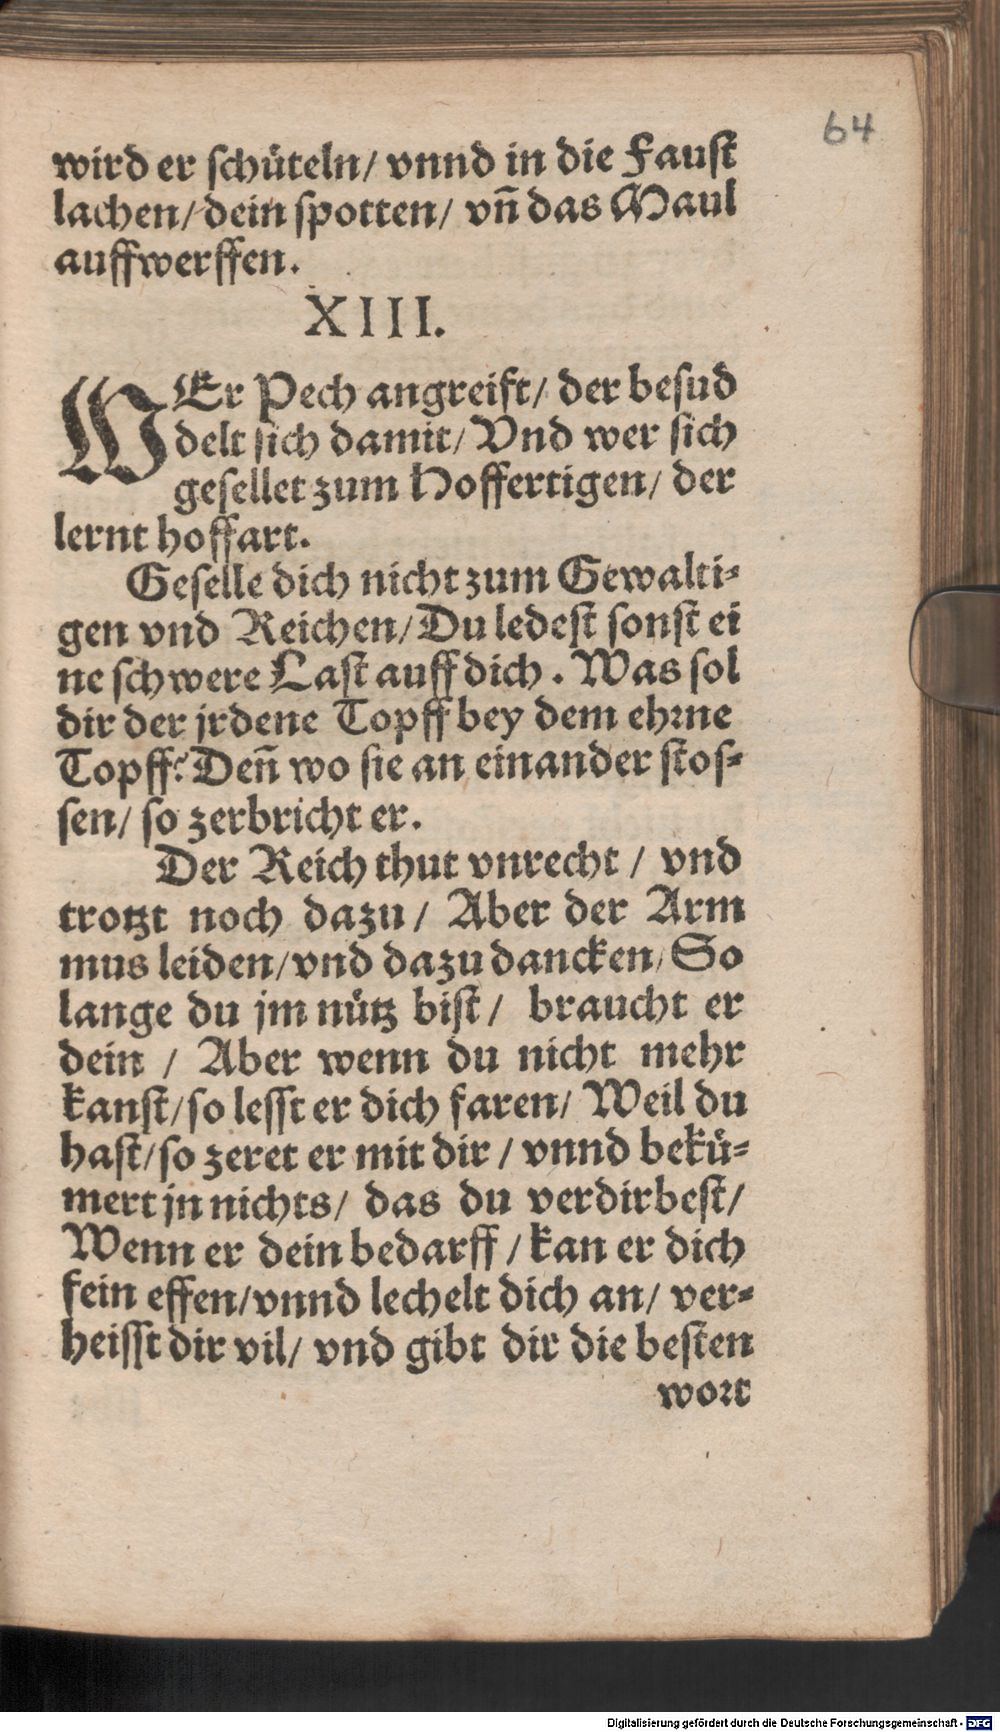 64
wird er schuͤteln/ vnnd in die Faust
lachen/ dein spotten/ vn̄ das Maul
auffwerffen.
XIII.
WEr Pech angreift/ der besud
delt sich damit/ Vnd wer sich
gesellet zum Hoffertigen/ der
lernt hoffart.
Geselle dich nicht zum Gewalti⸗
gen vnd Reichen/ Du ledest sonst ei
ne schwere Last auff dich. Was sol
dir der jrdene Topff bey dem ehꝛne
Topff? Den̄ wo sie an einander stos⸗
sen/ so zerbricht er.
Der Reich thut vnrecht / vnd
trotzt noch dazu/ Aber der Arm
mus leiden/ vnd dazu dancken/ So
lange du jm nuͤtz bist/ braucht er
dein / Aber wenn du nicht mehr
kanst/ so lesst er dich faren/ Weil du
hast/ so zeret er mit dir / vnnd bekuͤ⸗
mert jn nichts/ das du verdirbest/
Wenn er dein bedarff / kan er dich
fein effen/ vnnd lechelt dich an/ ver⸗
heisst dir vil/ vnd gibt dir die besten
woꝛt
Digitalisierung gefördert durch die Deutsche Forschungsgemeinschaft - DFG